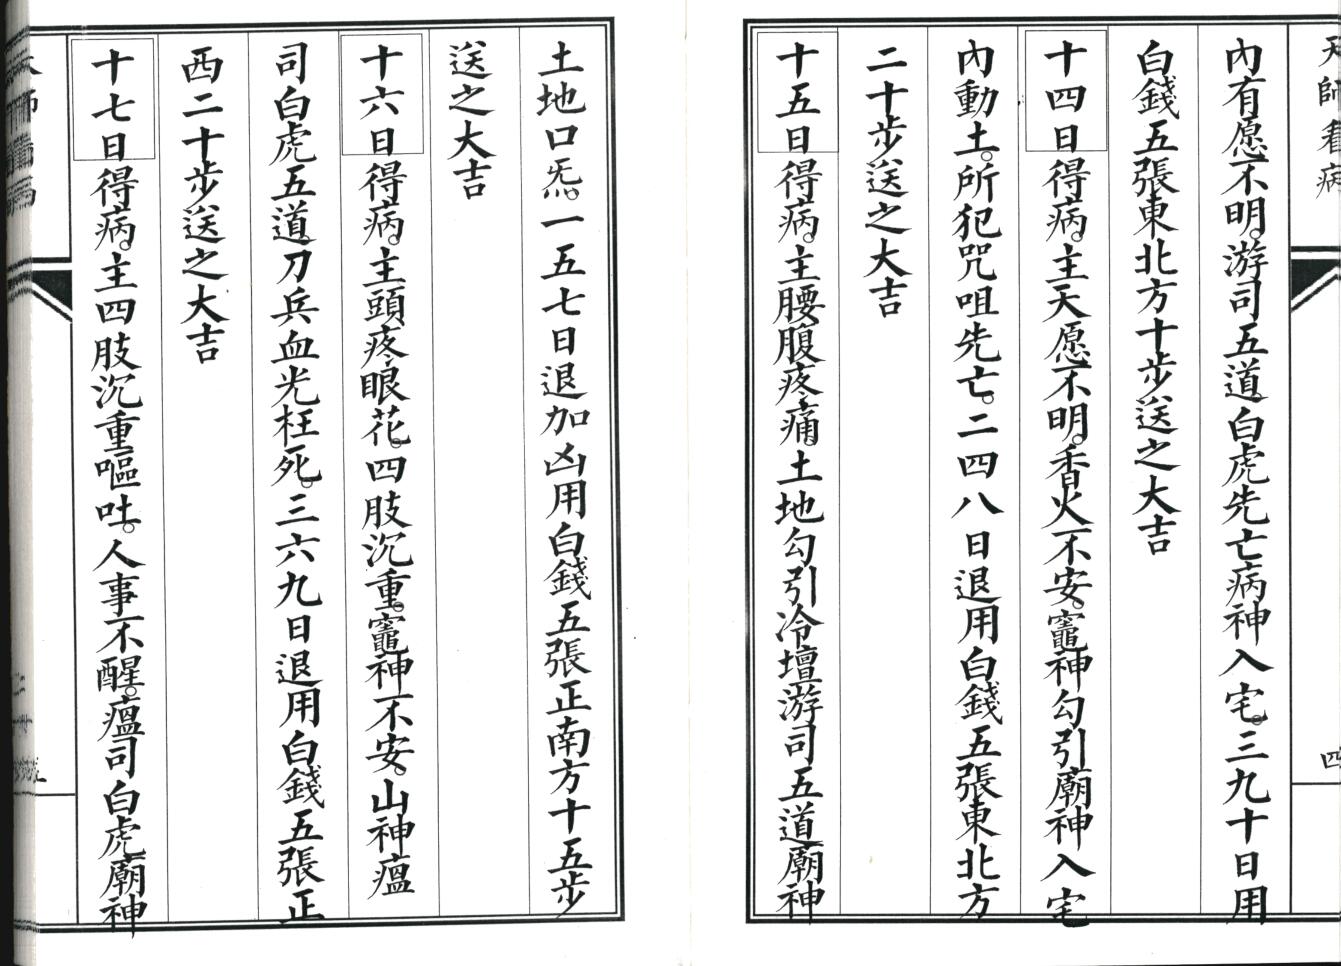 天師看病
四
內有愿不明。游司五道白虎先亡病神入宅。三九十日用
白錢五張東北方十步送之大吉
十四日得病。主天愿不明。香火不安。竈神勾引廟神入宅
內動土。所犯咒咀先亡。二四八日退用白錢五張東北方
二十步送之大吉
十五日得病。主腰腹疼痛。土地勾引冷壇游司五道廟神
土地口炁。一五七日退加凶用白錢五張正南方十五步
送之大吉
十六日得病。主頭疼眼花。四肢沉重。竈神不安。山神瘟
司白虎五道刀兵血光枉死。三六九日退用白錢五張正
西二十步送之大吉
十七日得病。主四肢沉重嘔吐。人事不醒。瘟司白虎廟神